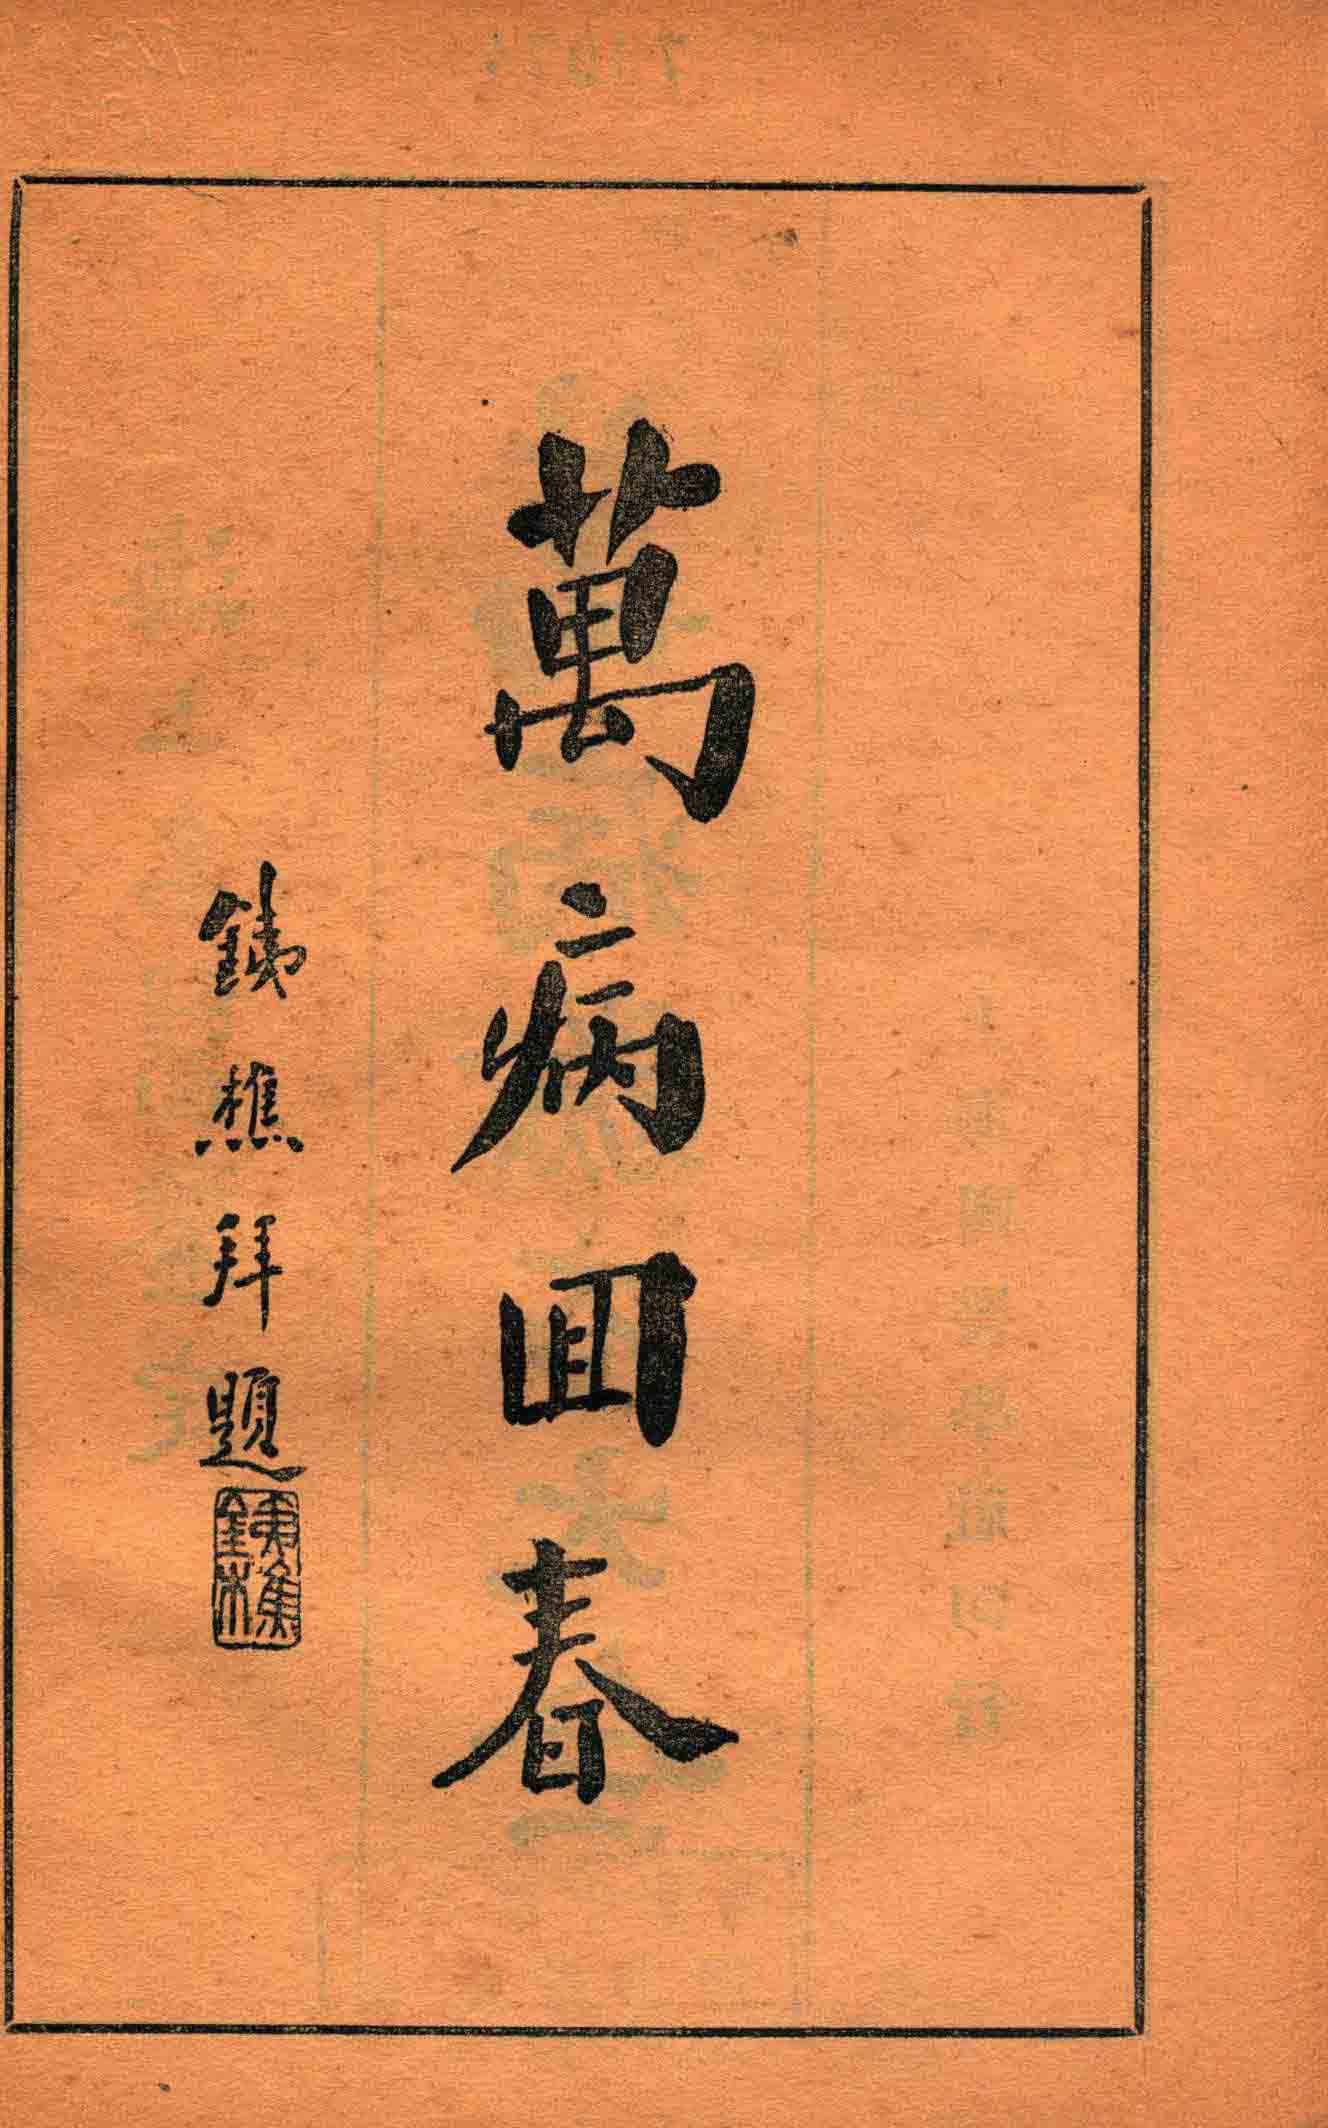 萬病回春
銕樵拜題
銕樵